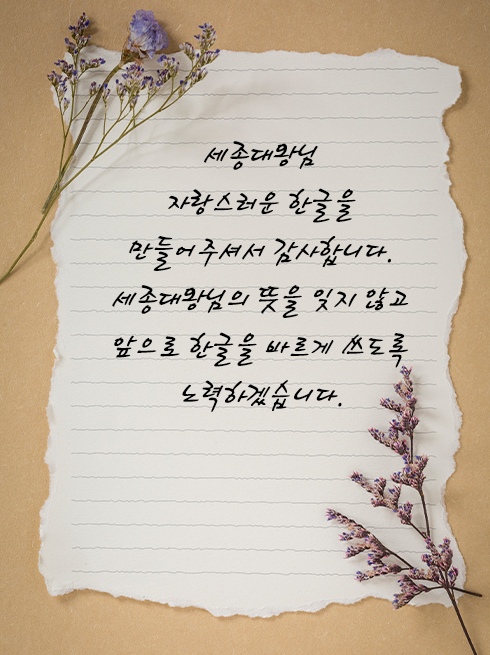 세종대왕님
자랑스러운 한글을
만들어주셔서 감사합니다.
세종대왕님의 뜻을 잊지 않고
앞으로 한글을 바르게 쓰도록
노력하겠습니다.